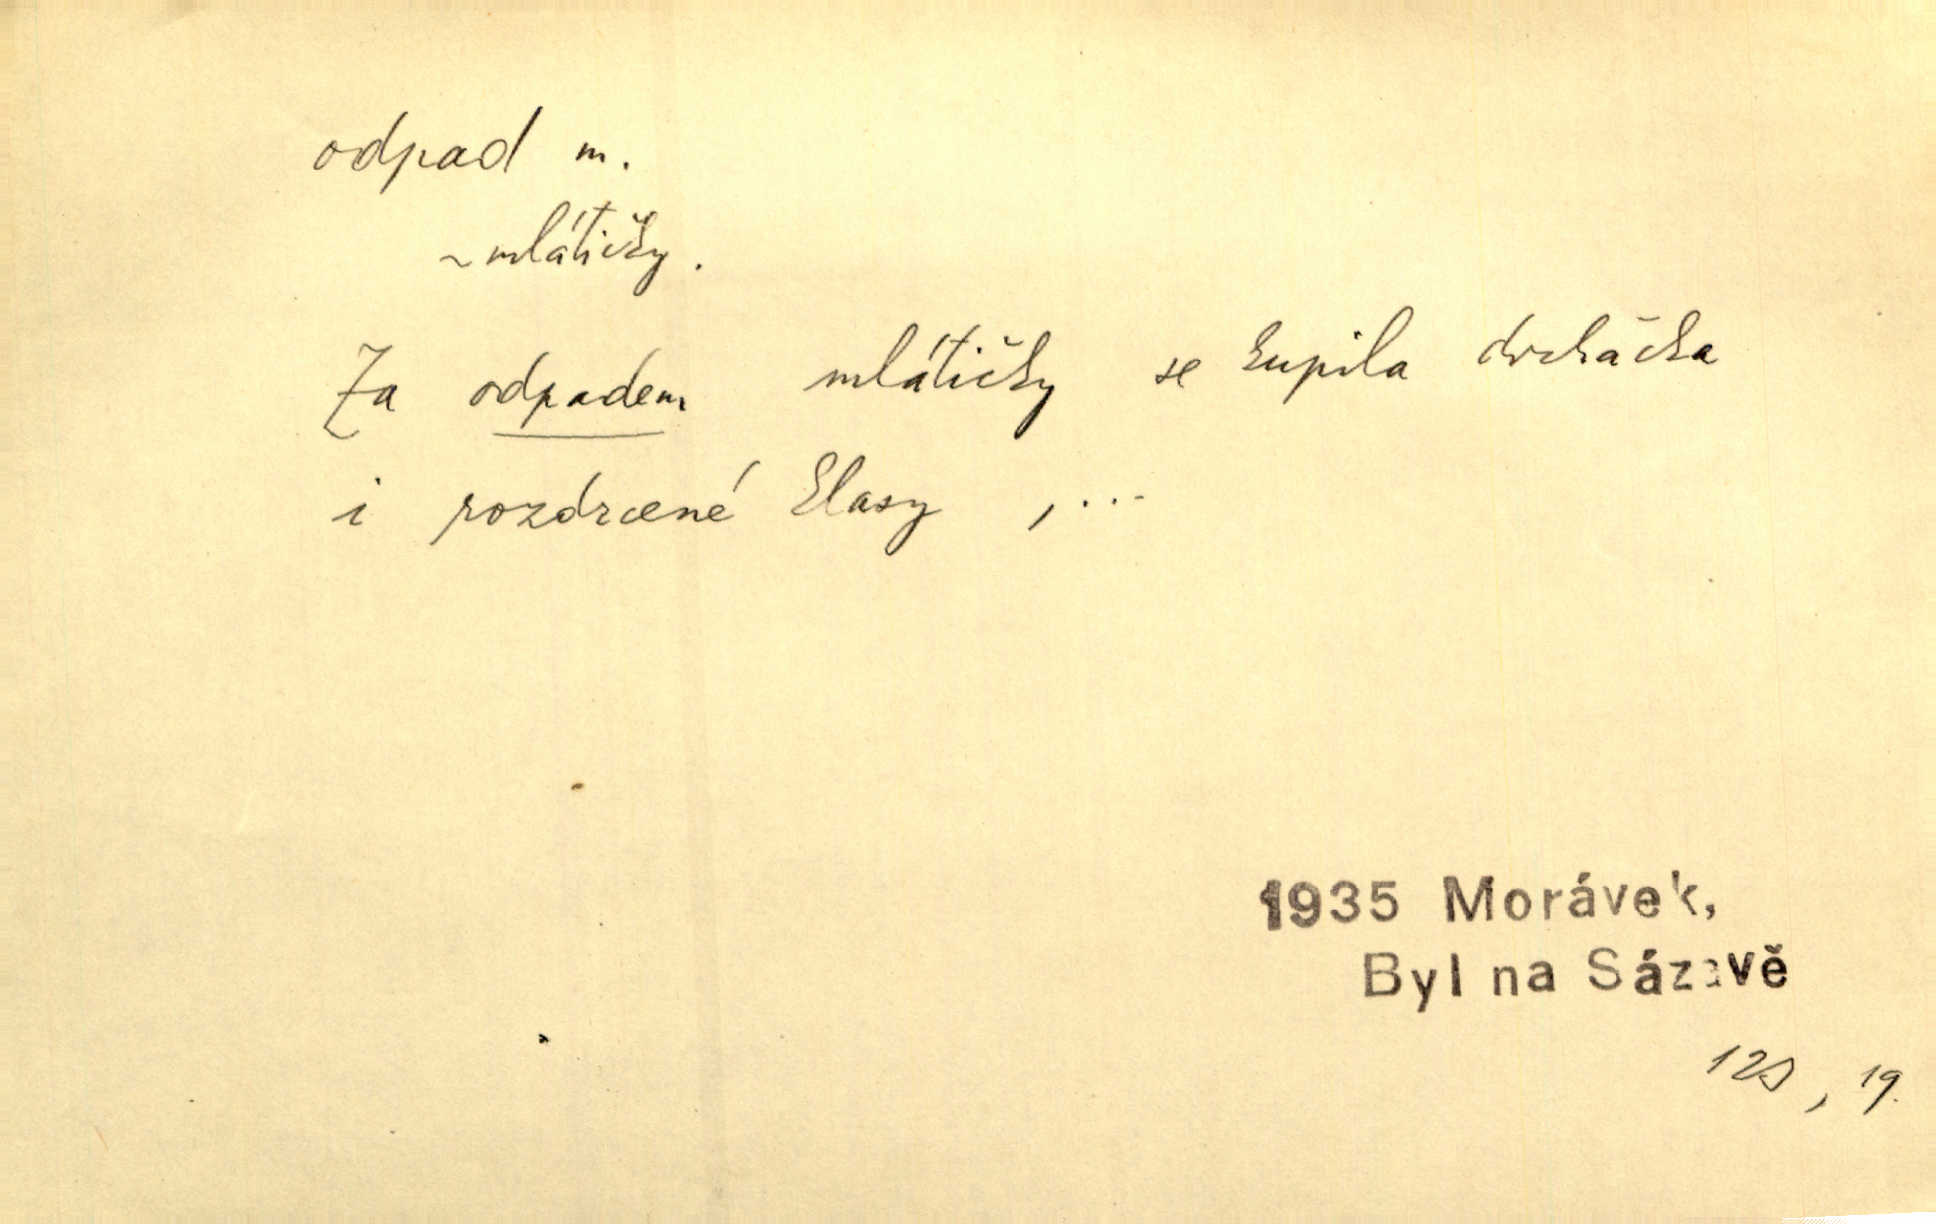 odpad m.
~ mlátičky.
Za odpadem mlátičky se kupila drcháčka
i rozdrcené klasy , ...
1935 Morávek,
Byl na Sázavě
, 19.